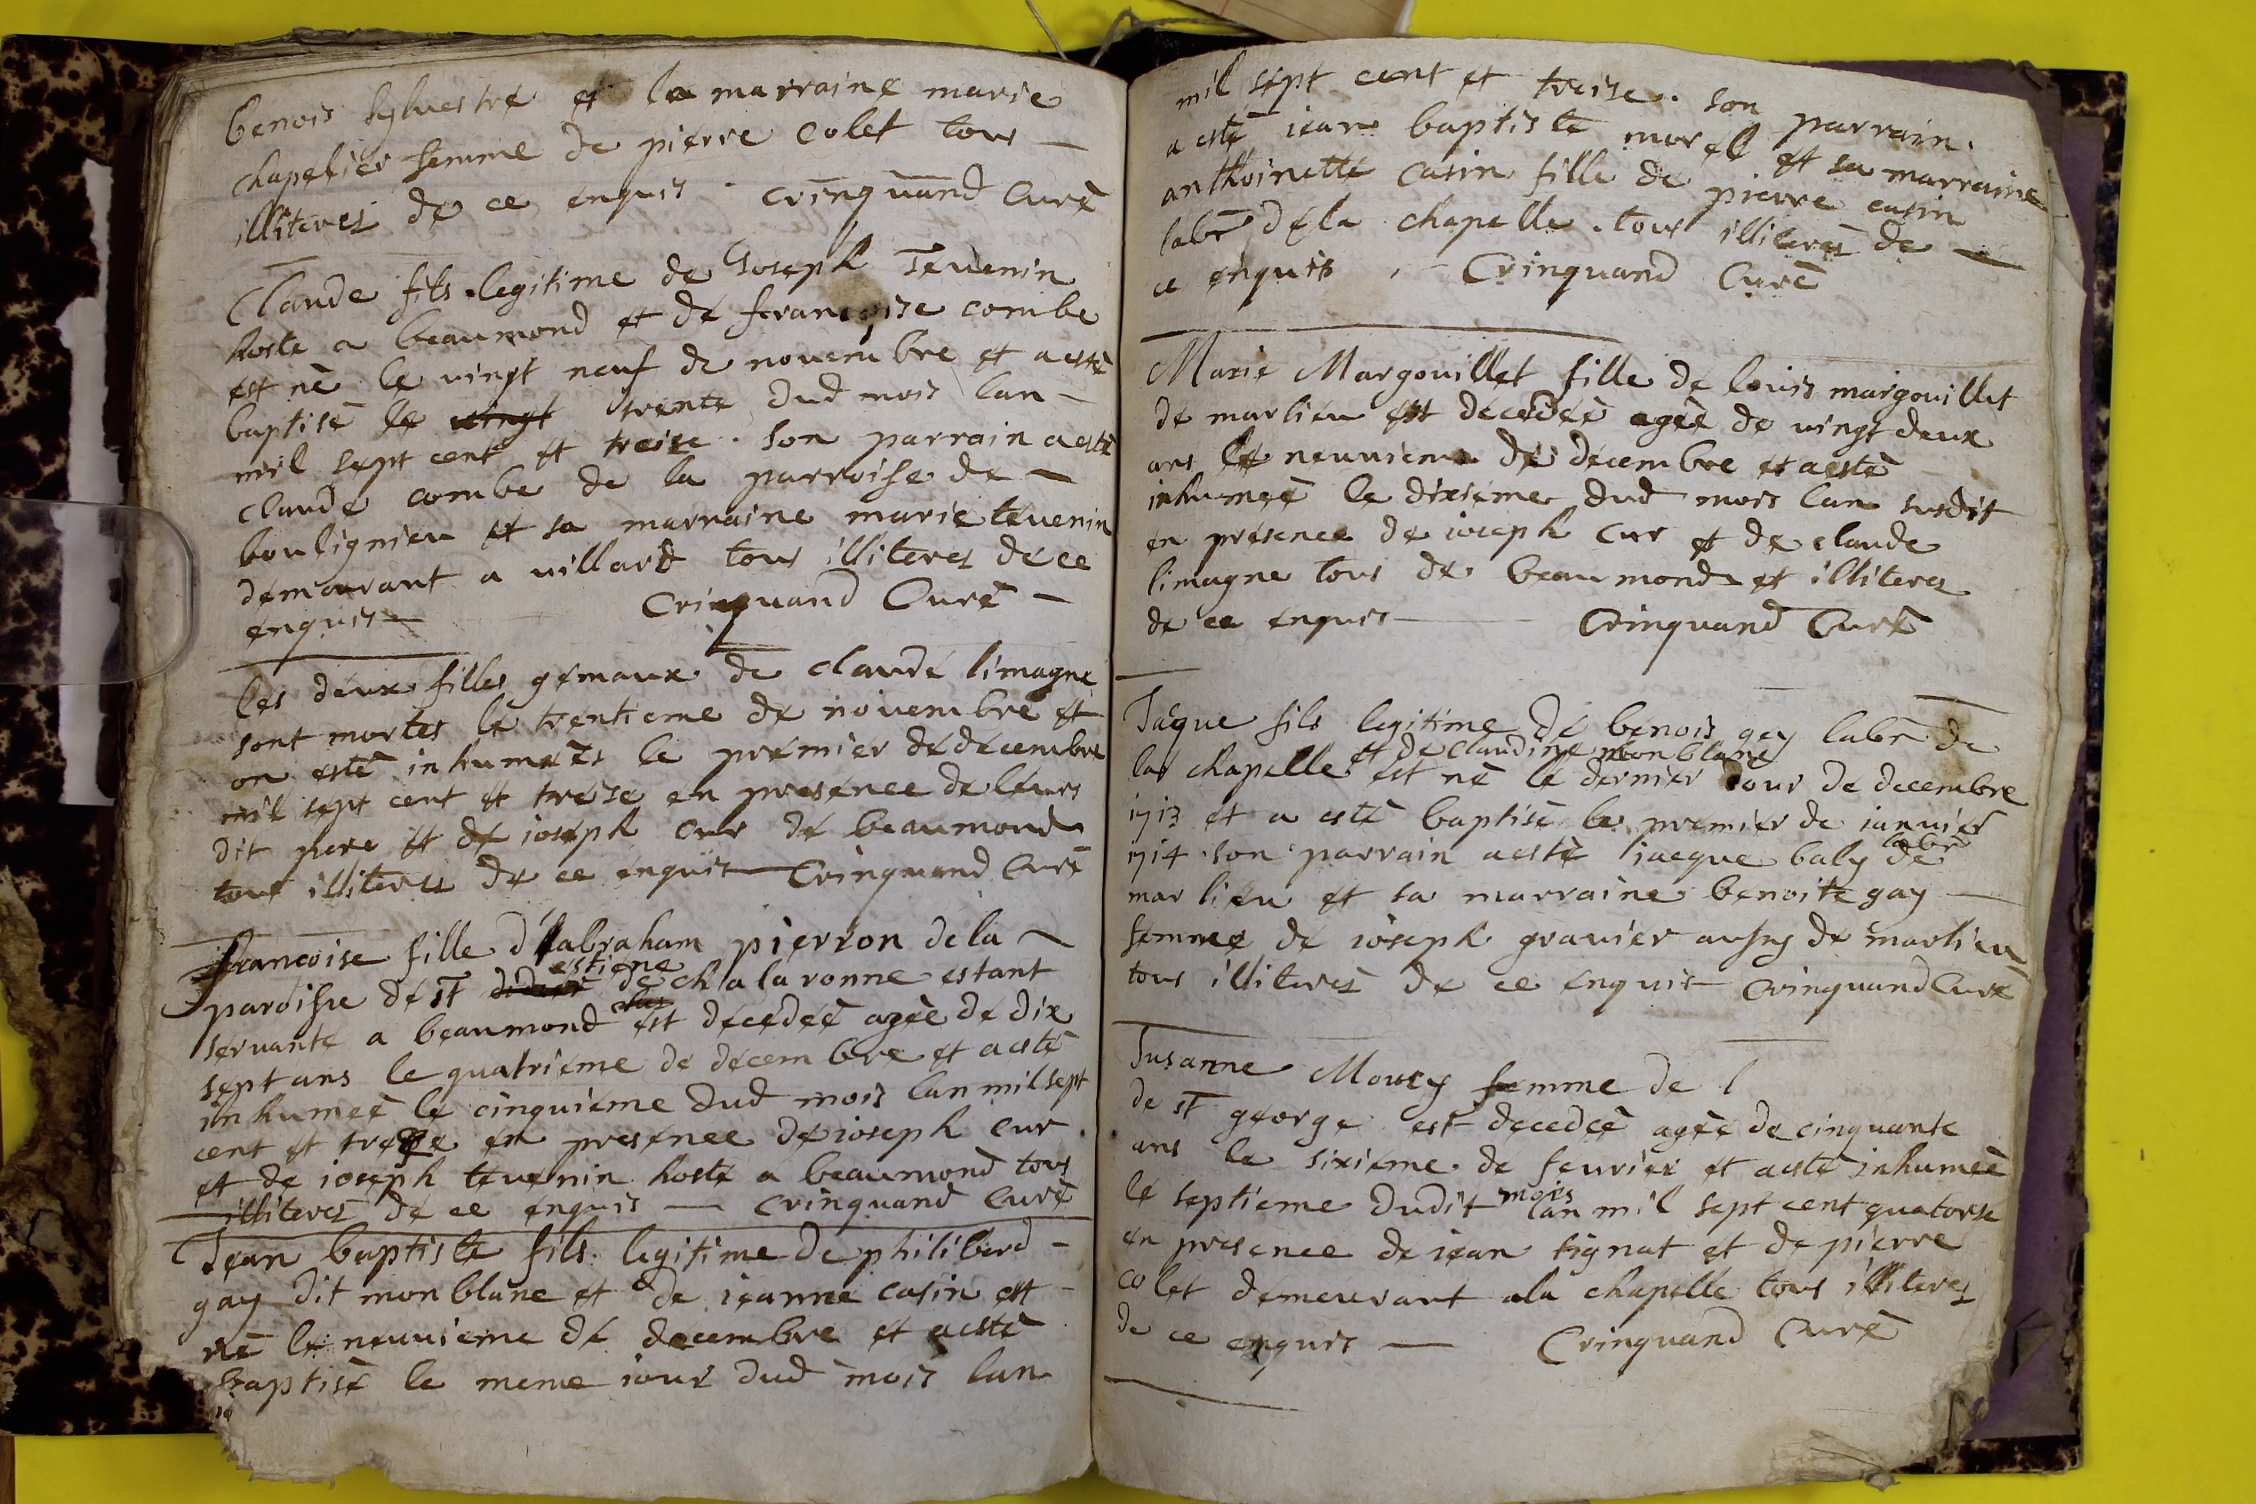 benois sylvestre et la marraine marie
chapelier femme de pierre colet tous —
illiteres de ce enquis . Crinquand Curé
Claude fils legitime de Joseph Tevenin
hoste a beaumond et de francoise combe
est né le vingt neuf de novembre et a esté
baptisé le vingt trente dud mois lan —
mil sept cent et treise . son parrain a esté
claude combe de la parroisse de —
boulignieu et sa marraine marie tevenin
demourant a villard tous illiteres de ce
enquis — Crinquand Curé —
les deux filles gemaux de claude limagne
sont mortes le trentieme de novembre et
on esté inhumeés le premier de decembre
mil sept cent et treise en presence de leurs
dit pere et de ioseph cur de beaumond
tous illiteres de ce enquis — Crinquand Curé
francoise fille d'abraham pierron dela
estiene
paroisse de st didier de chalaronne estant
servante a beaumond est decedeé ageè de dix
sept ans le quatrieme de decembre et a esté
inhumeé le cinquieme dud mois lan mil sept
cent et treise en presence de ioseph cur
et de ioseph tevenin hoste a beaumond tous
illiteres de ce enquis — crinquand curé
Jean baptiste fils legitime de philiberd —
gay dit monblanc et de ieanne casin est
né le neuvieme de decembre et a esté
baptisé le meme iour dud mois lan
mil sept cent et treise . son parrain
a esté iean baptiste morel et sa marraine
anthoinette casin fille de pierre casin
labr dela chapelle . tous illiteres de —
ce enquis . — Crinquand Curé
Marie Margouillet fille de louis margouillet
de marlieu est decedeé ageè de vingt deux
ans le neuvieme de decembre et a esté
inhumeé le dixieme dud mois lan susdit
en presence de ioseph cur et de claude
limagne tous de beaumond et illiteres
de ce enquis — Crinquand Curé
Jaque fils legitime de benois gay labr de
et de claudine monblanc
la chapelle est né le dernier iour de decembre
1713 et a esté baptisé le premier de ianvier
labr
1714 . son parrain a esté iacque baly de
marlieu et sa marraine benoite gay —
femme de ioseph gravier aussy de marlieu
tous illiteres de ce enquis — crinquand Curé
Susanne Moury femme de l
de st george est decedeé ageè de cinquante
ans le sixieme de fevrier et a esté inhumeé
mois
le septieme dudit lan mil sept cent quatorse
en presence de iean tignat et de pierre
colet demeurant a la chapelle tous illiteres
de ce enquis — Crinquand Curé